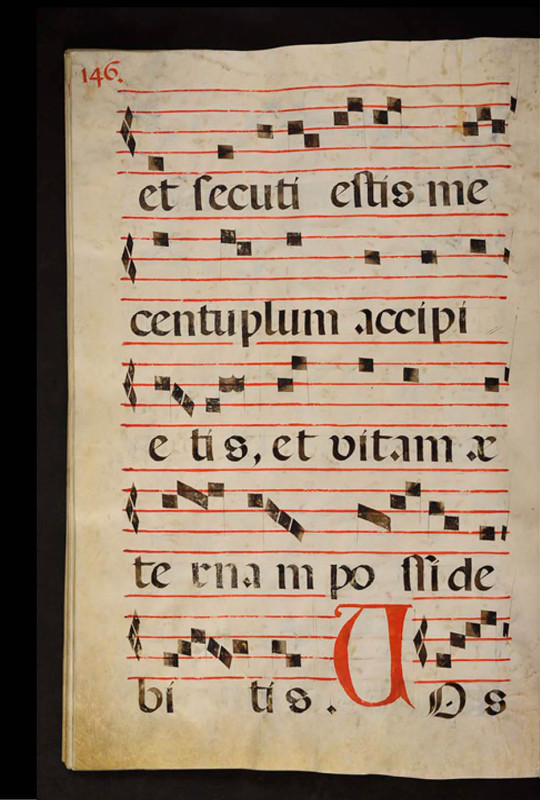 146.
et ſecuti eſtis me
centuplum accipi
e tis, et vitam æ
te rna m po ſſi de
bi tis. V Os